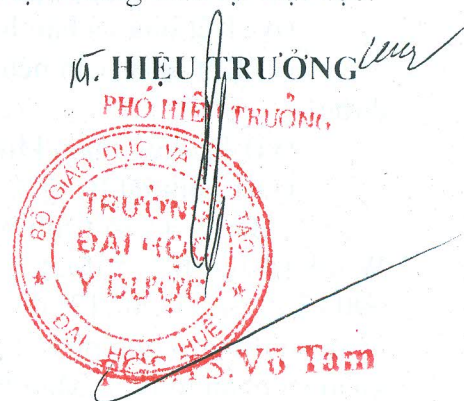 KT. HIỆU TRƯỞNG
PHÓ HIỆU TRƯỞNG
BỘ GIÁO DỤC VÀ ĐÀO TẠO
TRƯỜNG
ĐẠI HỌC
Y DƯỢC
ĐẠI HỌC HUẾ
PGS.TS. Võ Tam